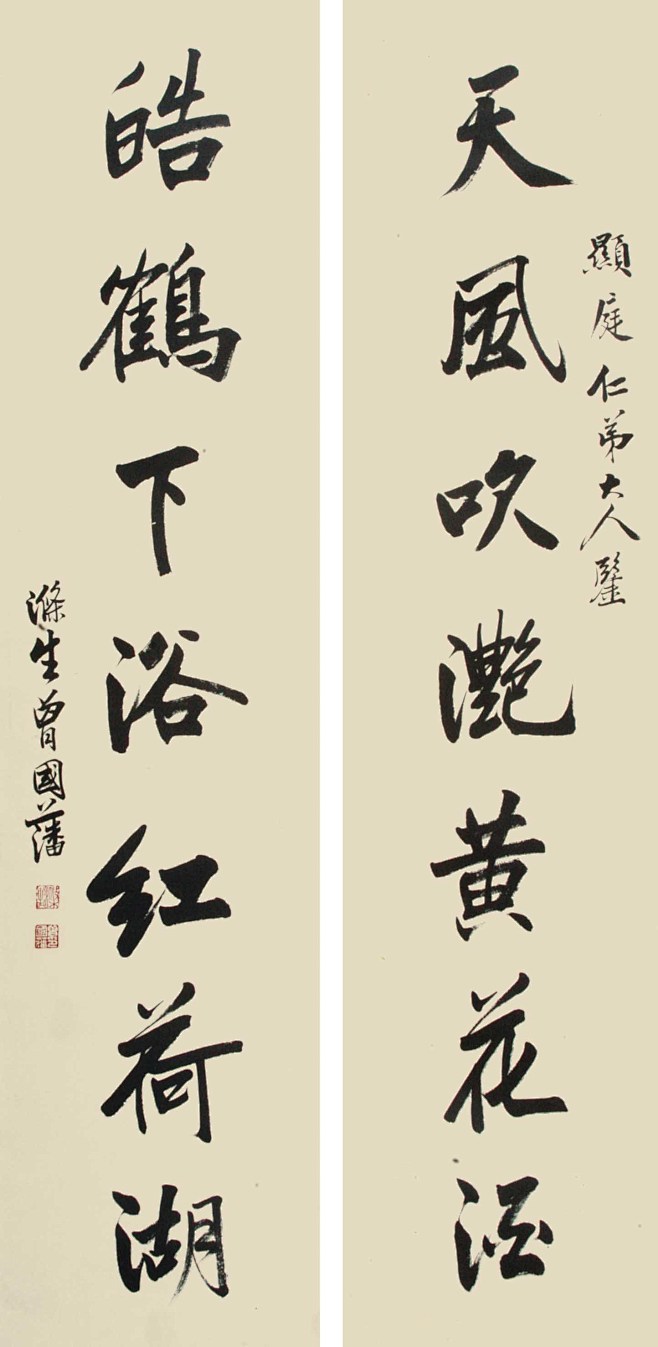 顯庭仁弟大人鑒
天風吹灩黄花酒
皓鶴下浴紅荷湖
滌生曾國藩